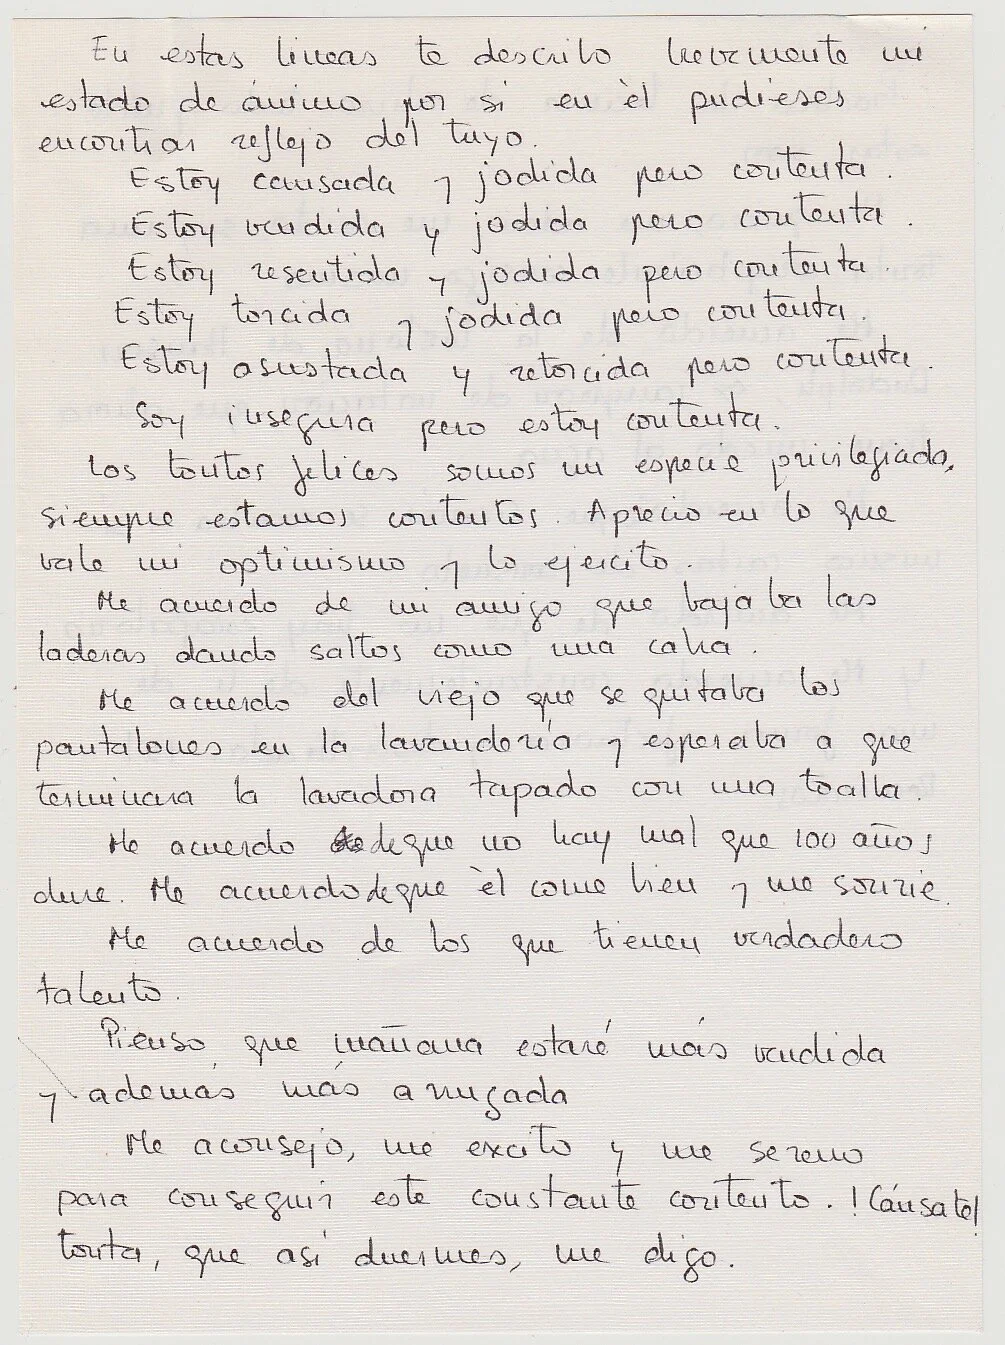 En estas lineas te describo brevemente mi
estado de ánimo por si en èl pudieses
encontrar reflejo del tuyo.
Estoy cansada y jodida pero contenta.
Estoy vendida y jodida pero contenta.
Estoy resentida y jodida pero contenta.
Estoy torcida y jodida pero contenta.
Estoy asustada y retorcida pero contenta.
Soy insegura pero estoy contenta.
Los tontos felices somos un especie privilegiada,
siempre estamos contentos. Aprecio en lo que
vale mi optimismo y lo ejercito.
Me acuerdo de mi amigo que bajaba las
laderas dando saltos como una cabra.
Me acuerdo del viejo que se quitaba los
pantalones en la lavandería y esperaba a que
terminara la lavadora tapado con una toalla.
Me acuerdo de que no hay mal que 100 años
dure. Me acuerdo de que èl come bien y me sonrie.
Me acuerdo de los que tienen verdadero
talento.
Pienso que mañana estaré más vendida
y además más arrugada
Me aconsejo, me excito y me sereno
para conseguir este constante contento. !Cánsate!
tonta, que así duermes, me digo.